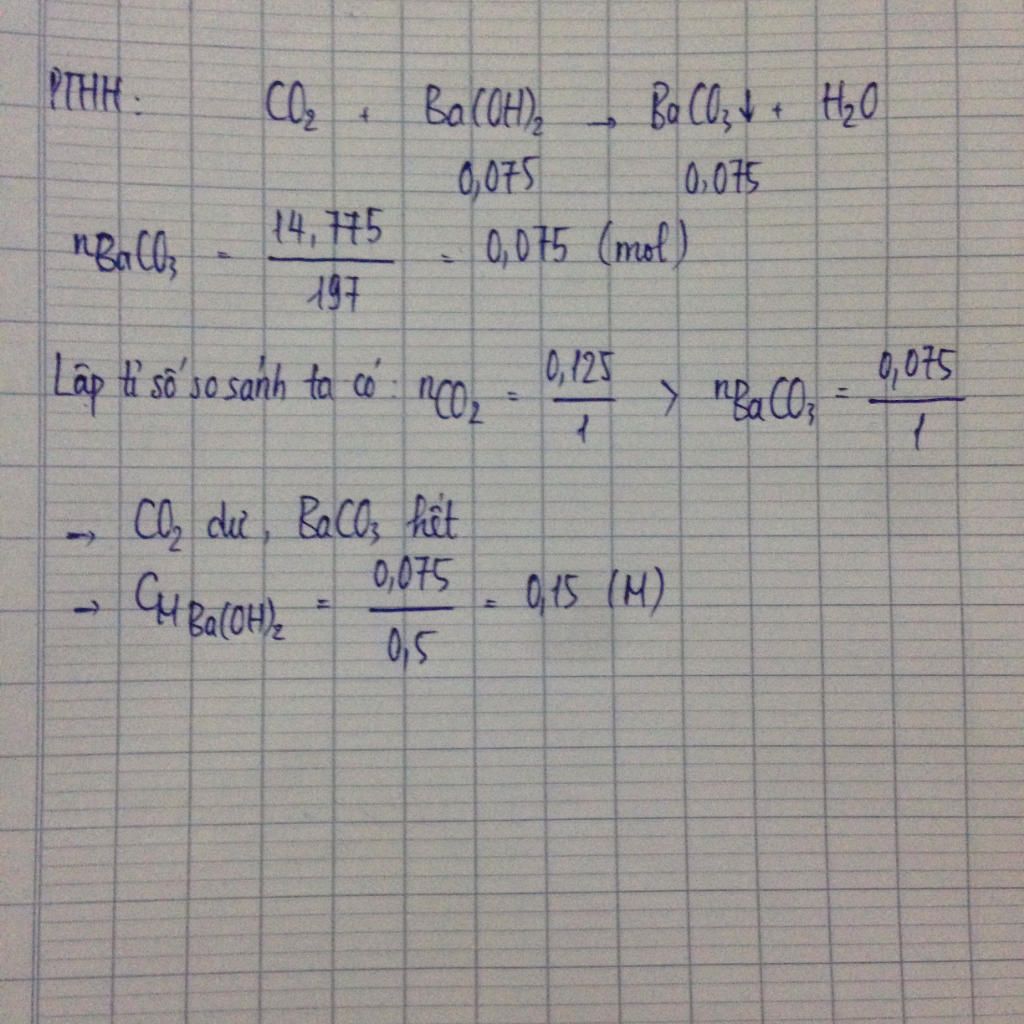 PTHH: CO₂ + Ba(OH)₂ → BaCO₃↓ + H₂O
0,075 0,075
nBaCO₃ = 14,775/197 = 0,075 (mol)
Lập tỉ số so sánh ta có: nCO₂ = 0,125/1 > nBaCO₃ = 0,075/1
→ CO₂ dư, BaCO₃ hết
→ CM Ba(OH)₂ = 0,075/0,5 = 0,15 (M)